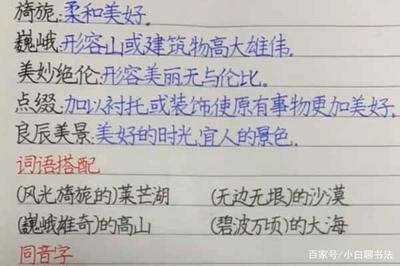 旖旎:柔和美好.
巍峨:形容山或建筑物高大雄伟.
美妙绝伦:形容美丽无与伦比.
点缀:加以衬托或装饰使原有事物更加美好.
良辰美景:美好的时光,宜人的景色.
词语搭配
(风光旖旎的)莱芒湖 (无边无垠)的沙漠
(巍峨雄奇)的高山 (碧波万顷)的大海
同音字
百家号/小白聊书法